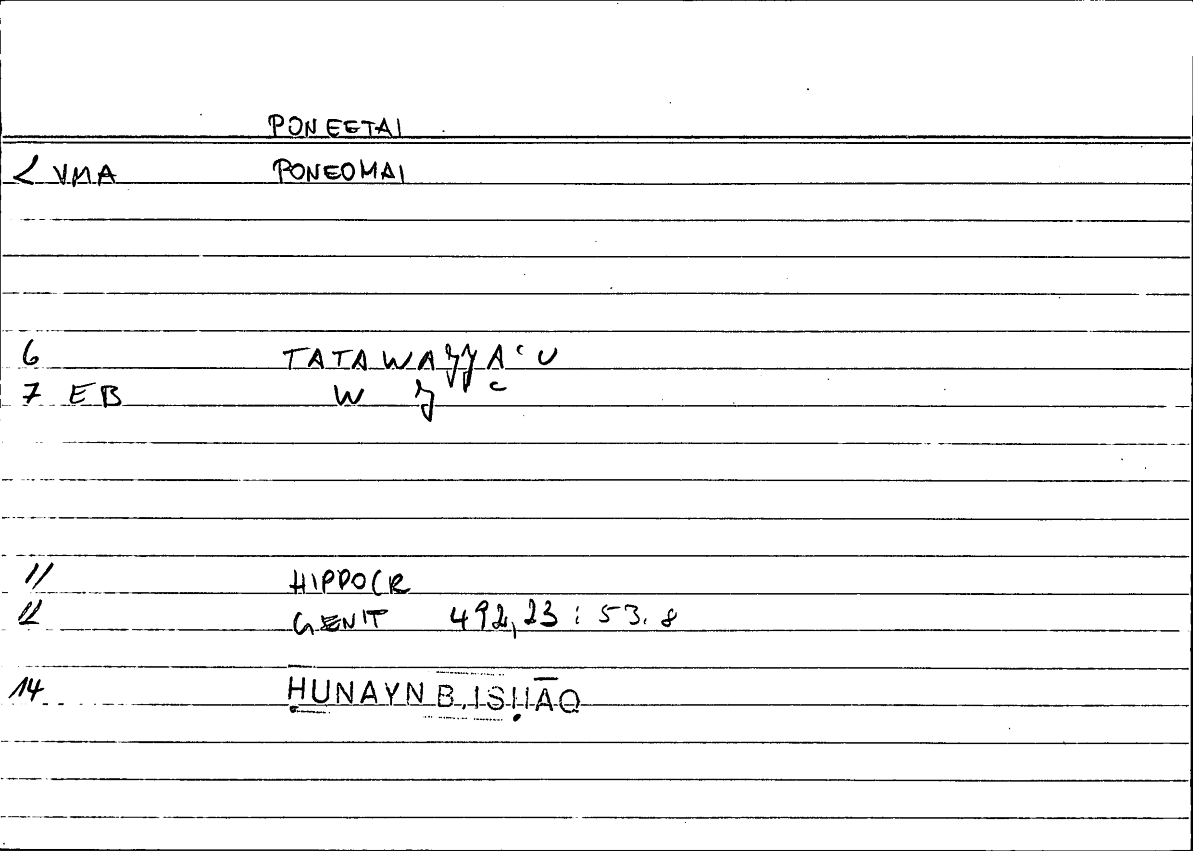 PONEETAI
< VMA PONEOMAI
6 TATAWAǧǧAʿU
7 EB W ǧ ʿ
11 HIPPOCR
12 GENIT 492,23 : 53.8
14 ḤUNAYN B. ISḤĀQ